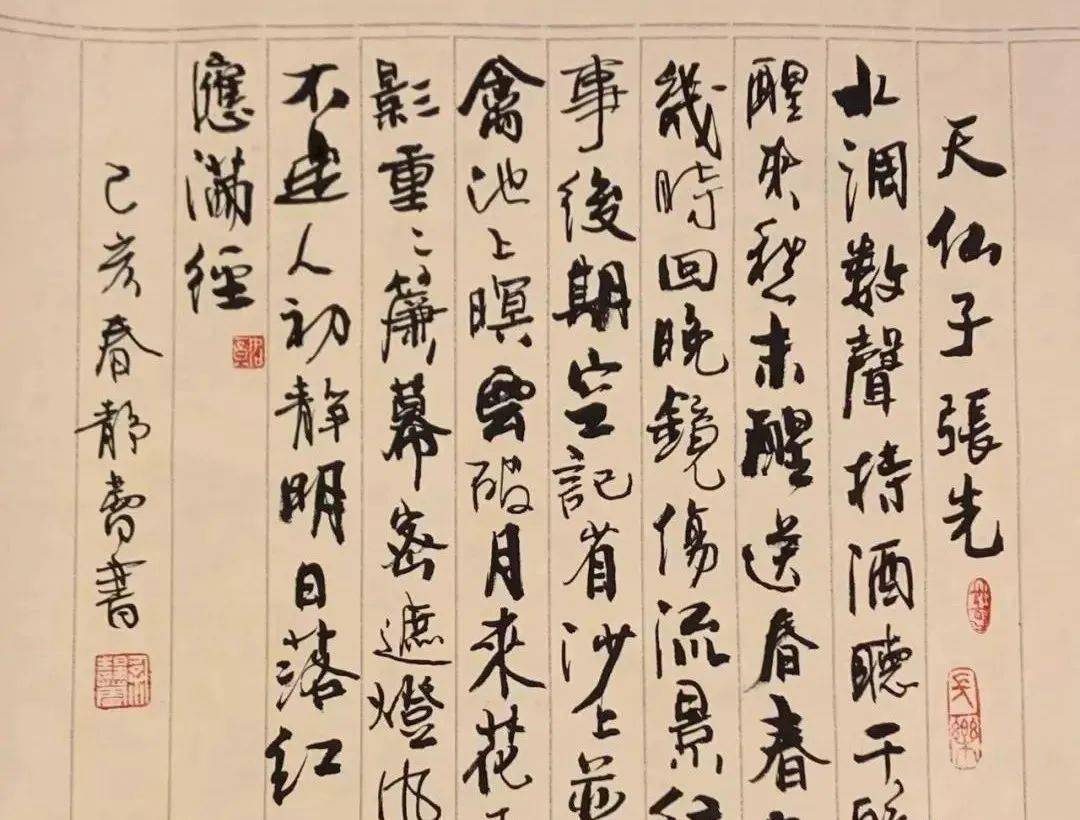 天仙子張先
長樂
水調數聲持酒聽午醉
醒來愁未醒送春春
幾時回晚鏡傷流景往
事後期空記省沙上並
禽池上暝雲破月來花
影重〻簾幕密遮燈風
不定人初靜明日落紅
應滿徑
己亥春靜書